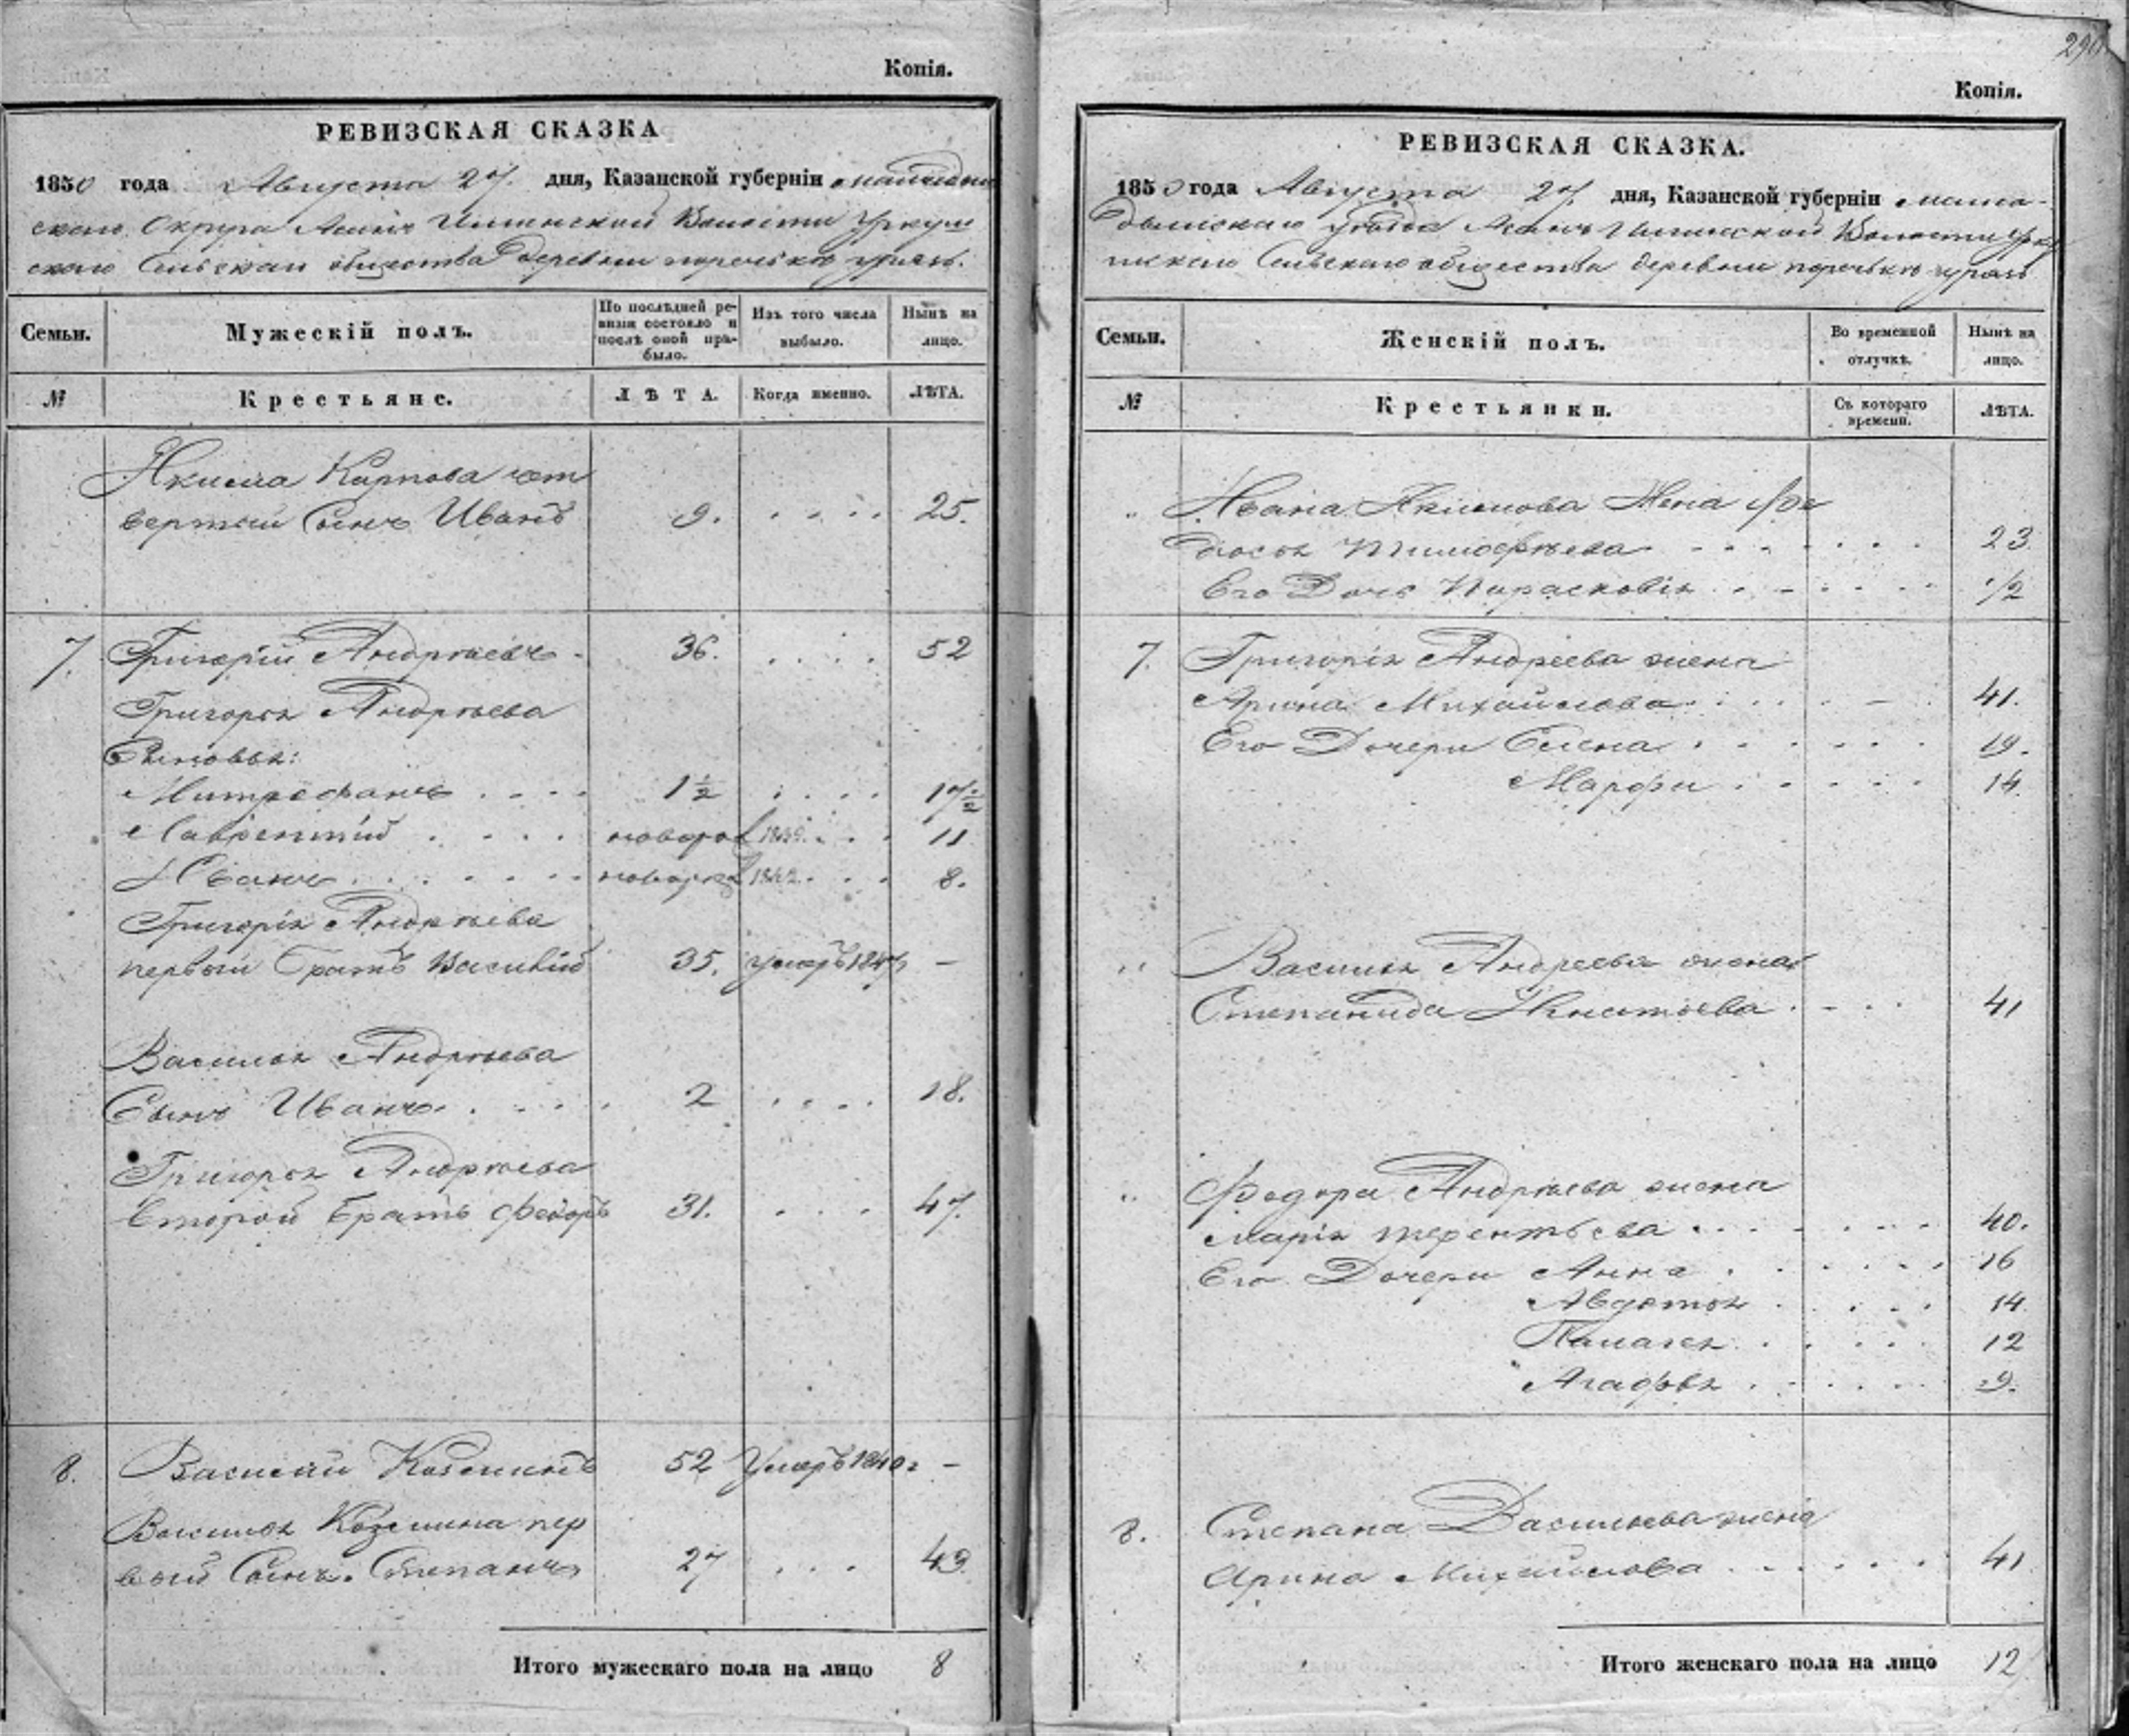 Копія.
РЕВИЗСКАЯ СКАЗКА
1850 года Августа 27. дня, Казанской губерніи
скаго Округа Волости
скаго общества деревни
Семьи. Мужескій полъ. По послѣдней ревизіи состояло и послѣ оной прибыло. Изъ того числа выбыло. Нынѣ на лицо.
№ Крестьяне. ЛѢТА. Когда именно. ЛѢТА.
Якима Карпова чет
вертый Сынъ Иванъ 9. 25.
7. Григорій Андрѣевъ 36. 52
Григорья Андрѣева
Сыновья:
Митрофанъ 1½ 17½
Лаврентій 11
Иванъ 8.
Григорія Андрѣева
первый Братъ Василій 35. умеръ 1847 –
Василья Андрѣева
Сынъ Иванъ 2 18.
Григорья Андрѣева
второй Братъ Федоръ 31. 47.
8. Василий Козминъ 52 Умеръ 1840 г –
Василья Козмина пер
вый Сынъ Степанъ 27 43
Итого мужескаго пола на лицо 8
290
Копія.
РЕВИЗСКАЯ СКАЗКА.
1850 года Августа 27. дня, Казанской губерніи
Волости
Сельскаго общества деревни
Семьи. Женскій полъ. Во временной отлучкѣ. Нынѣ на лицо.
№ Крестьянки. Съ котораго времени. ЛѢТА.
Ивана Якимова Жена Фе
досья Тимофѣева 23.
Его Дочь Парасковія ½
7. Григорія Андреева жена
Арина Михайлова 41.
Его Дочери Елена 19.
Марфа 14.
Василья Андреева жена
Степанида 41
Федора Андрѣева жена
Марія Терентьева 40.
Его Дочери Анна 16
Авдотья 14
Палагея 12
Агафья 9.
8. Степана Васильева жена
Арина Михайлова 41
Итого женскаго пола на лицо 12